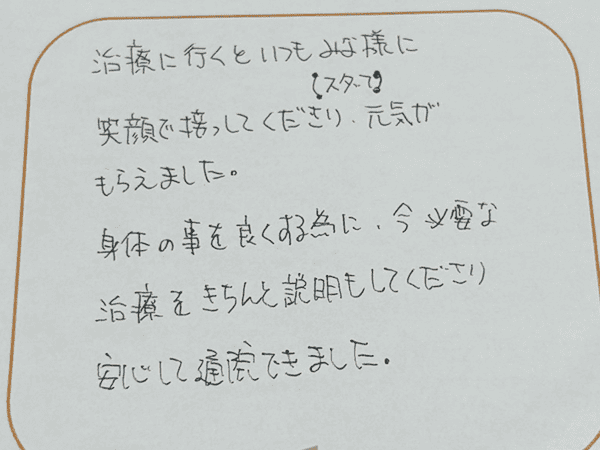 治療に行くといつもみな様に
(スタッフ)
笑顔で接っしてくださり、元気が
もらえました。
身体の事を良くする為に、今必要な
治療をきちんと説明もしてくださり
安心して通院できました。